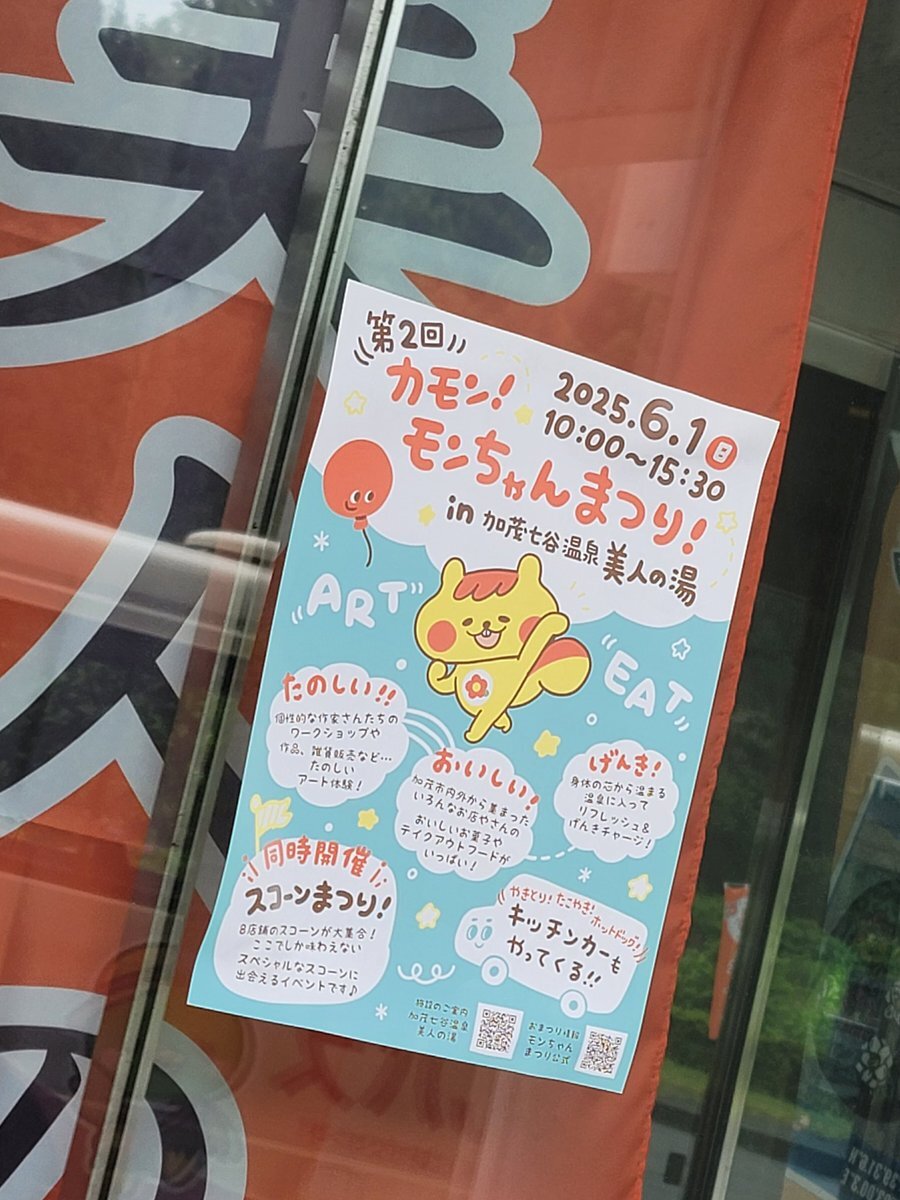 美人の
第2回
カモン!
モンちゃんまつり!
2025.6.1日
10:00~15:30
in 加茂七谷温泉 美人の湯
ART
EAT
たのしい!!
個性的な作家さんたちの
ワークショップや
作品、雑貨販売など…
たのしい
アート体験!
おいしい!
加茂市内外から集まった
いろんなお店やさんの
おいしいお菓子や
テイクアウトフードが
いっぱい!
げんき!
身体の芯から温まる
温泉に入って
リフレッシュ&
げんきチャージ!
同時開催
スコーンまつり!
8店舗のスコーンが大集合!
ここでしか味わえない
スペシャルなスコーンに
出会えるイベントです♪
やきとり!たこやき!ホットドッグ!
キッチンカーも
やってくる!!
施設のご案内
加茂七谷温泉
美人の湯
おまつり情報
モンちゃん
まつり公式